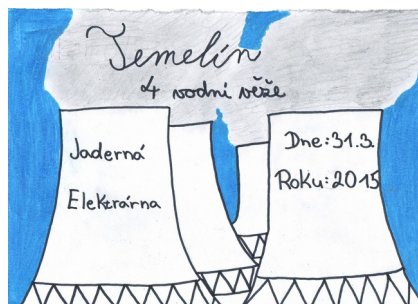 Temelín
4 vodní věže
Jaderná
Elektrárna
Dne:31.3.
Roku:2015